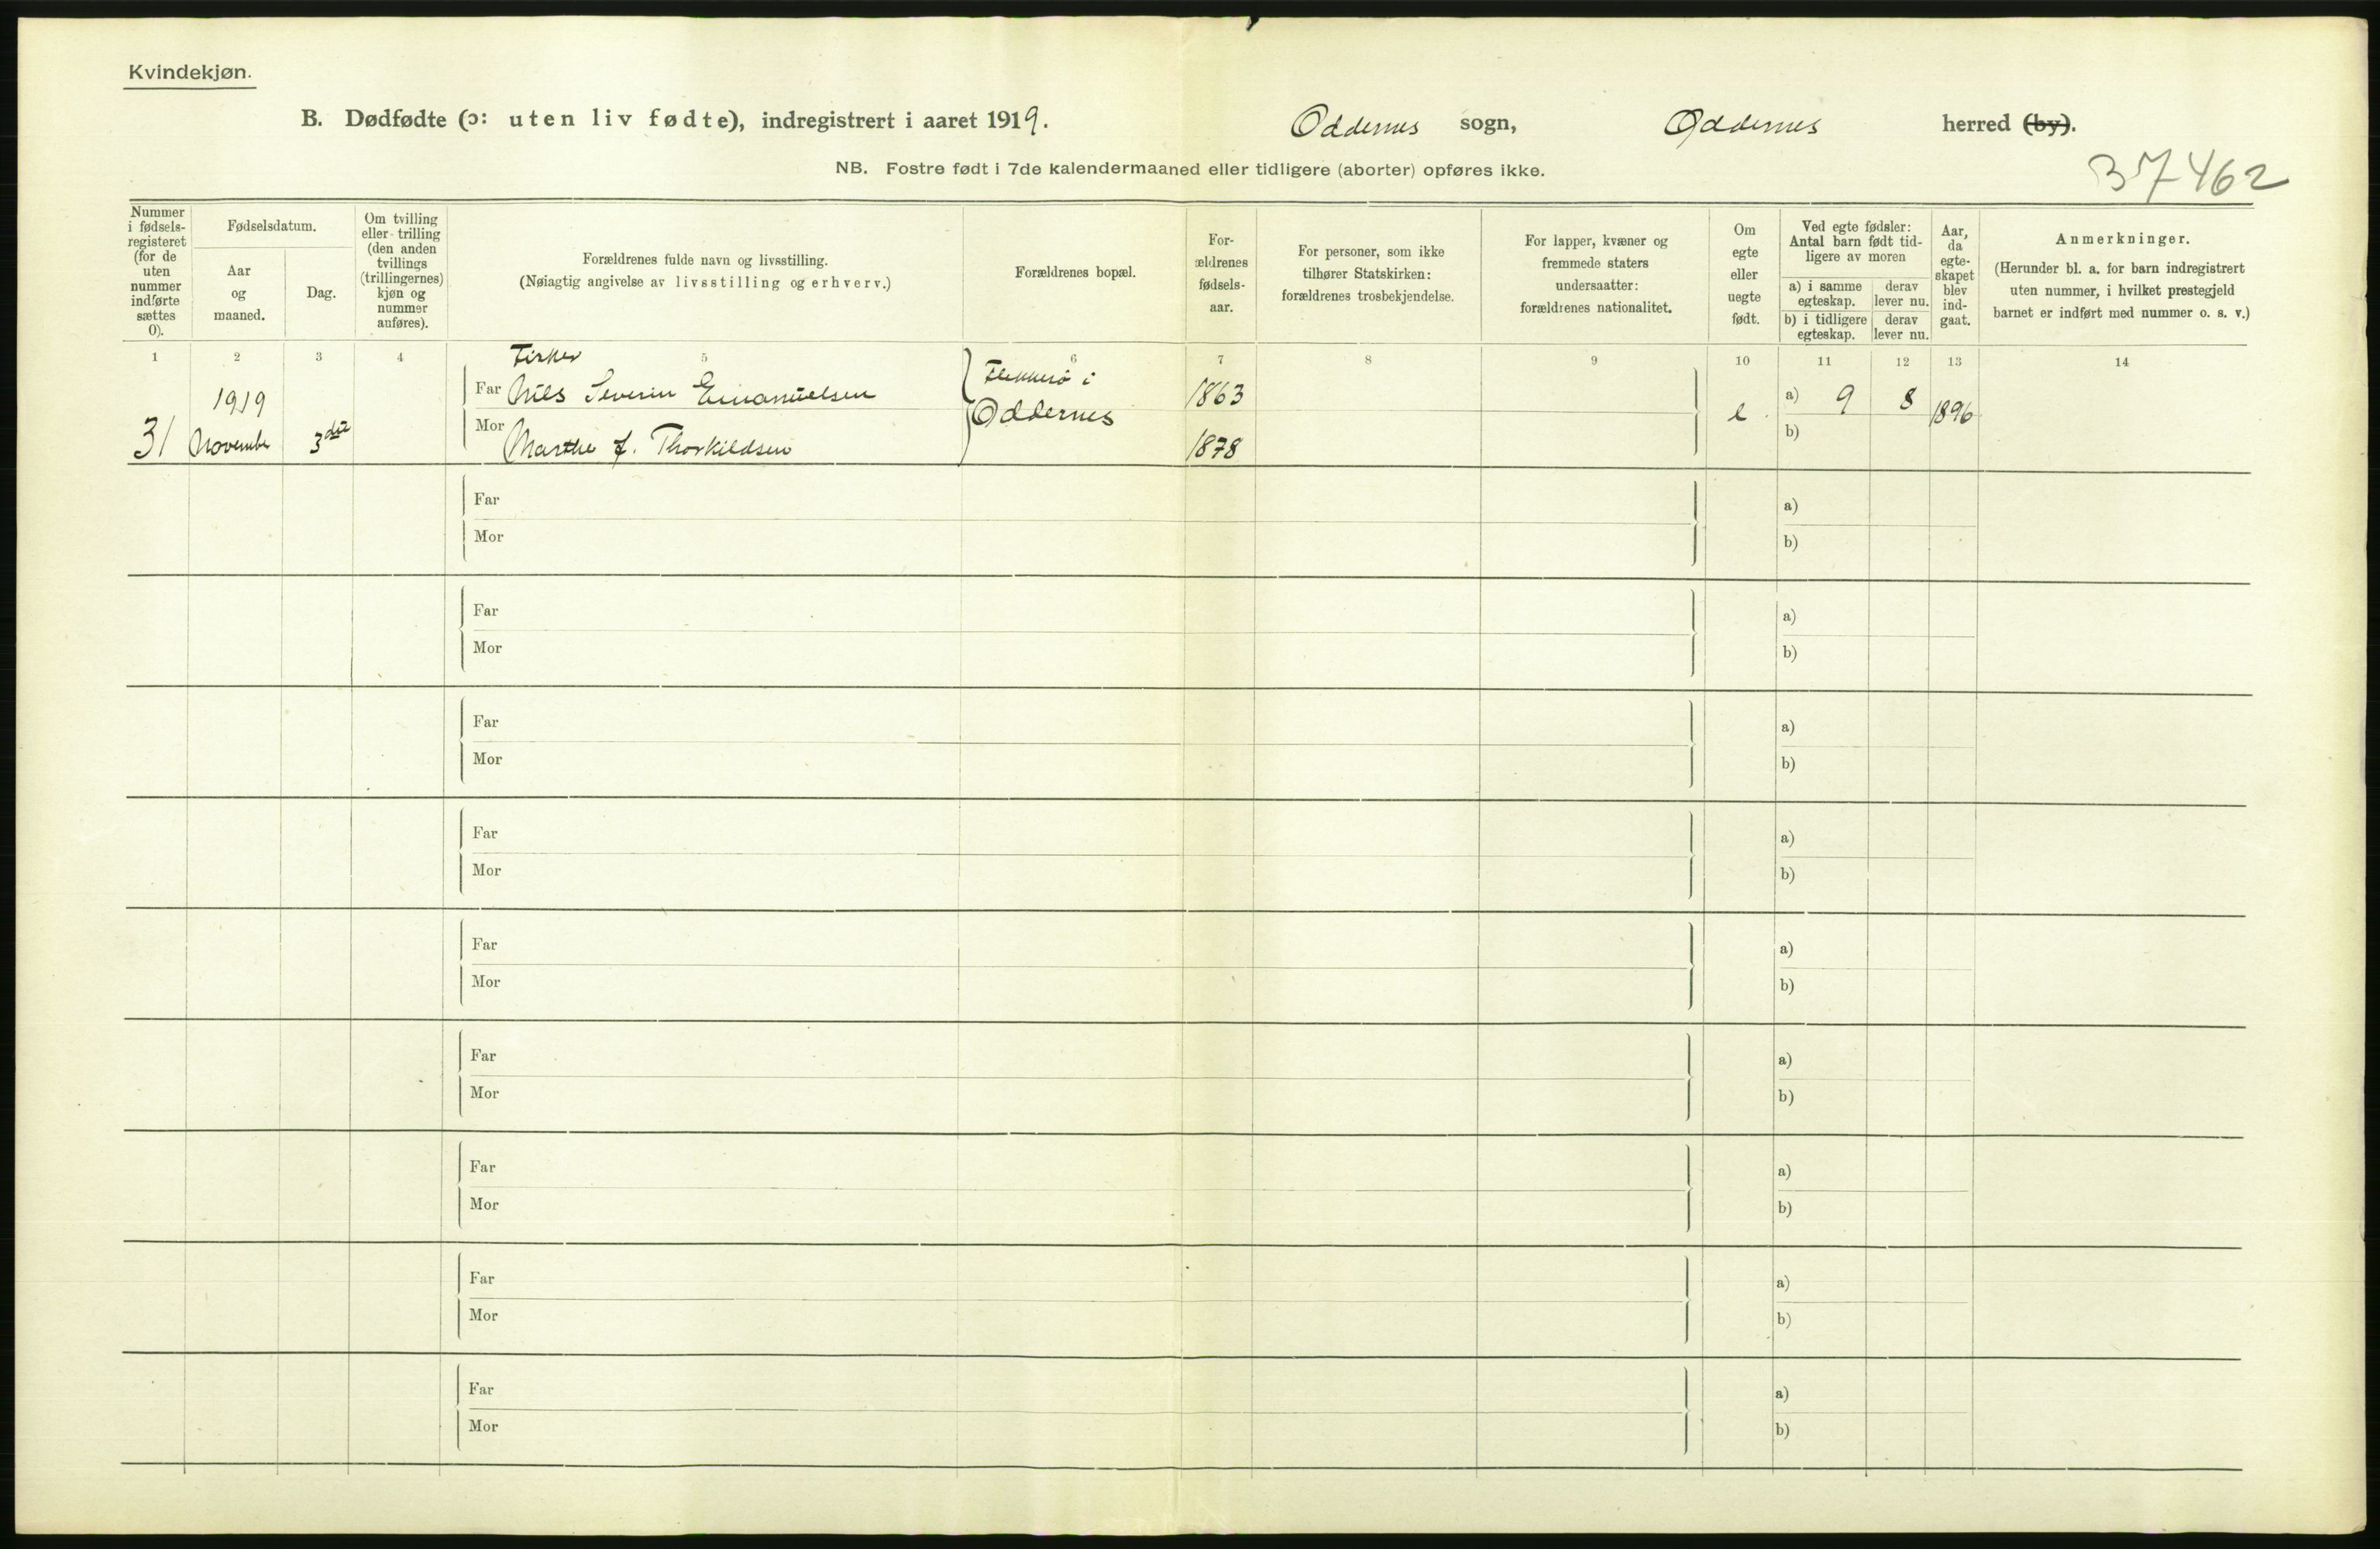 Kvindekjøn.
B. Dødfødte (ɔ: uten liv fødte), indregistrert i aaret 1919. Oddernes sogn, Oddernes herred (by).
NB. Fostre født i 7de kalendermaaned eller tidligere (aborter) opføres ikke.
37462
Nummer i fødsels-registeret (for de uten nummer indførte sættes 0).
Fødselsdatum.
Aar og maaned.
Dag.
Om tvilling eller trilling (den anden tvillings (trillingernes) kjøn og nummer anføres).
Forældrenes fulde navn og livsstilling.
(Nøiagtig angivelse av livsstilling og erhverv.)
Forældrenes bopæl.
For-ældrenes fødsels-aar.
For personer, som ikke tilhører Statskirken: forældrenes trosbekjendelse.
For lapper, kvæner og fremmede staters undersaatter: forældrenes nationalitet.
Om egte eller uegte født.
Ved egte fødsler: Antal barn født tid-ligere av moren
a) i samme egteskap.
derav lever nu.
b) i tidligere egteskap.
derav lever nu.
Aar, da egte-skapet blev ind-gaat.
Anmerkninger.
(Herunder bl. a. for barn indregistrert uten nummer, i hvilket prestegjeld barnet er indført med nummer o. s. v.)
1 2 3 4 5 6 7 8 9 10 11 12 13 14
Fisker
Far Nils Severin Emanuelsen
Mor Marthe J. Thorkildsen
31 1919 November 3die
Flekkerø i
Oddernes
1863
1878
e
a) 9 8 1896
b)
Far a)
Mor b)
Far a)
Mor b)
Far a)
Mor b)
Far a)
Mor b)
Far a)
Mor b)
Far a)
Mor b)
Far a)
Mor b)
Far a)
Mor b)
Far a)
Mor b)